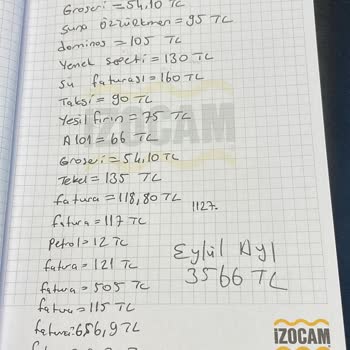 Groseri = 54,10 TL
= 95 TL
dominos = 105 TL
Yemek sepeti = 130 TL
Su faturası = 160 TL
Taksi = 90 TL
Yeşil fırın = 75 TL
A101 = 66 TL
İZOCAM
Groseri = 54,10 TL
Tekel = 135 TL
fatura = 118,80 TL
1127.
fatura = 117 TL
Petrol = 12 TL
Eylül Ayı
3566 TL
fatura = 121 TL
fatura = 505 TL
fatura = 115 TL
fatura: 656,9 TL
İZOCAM